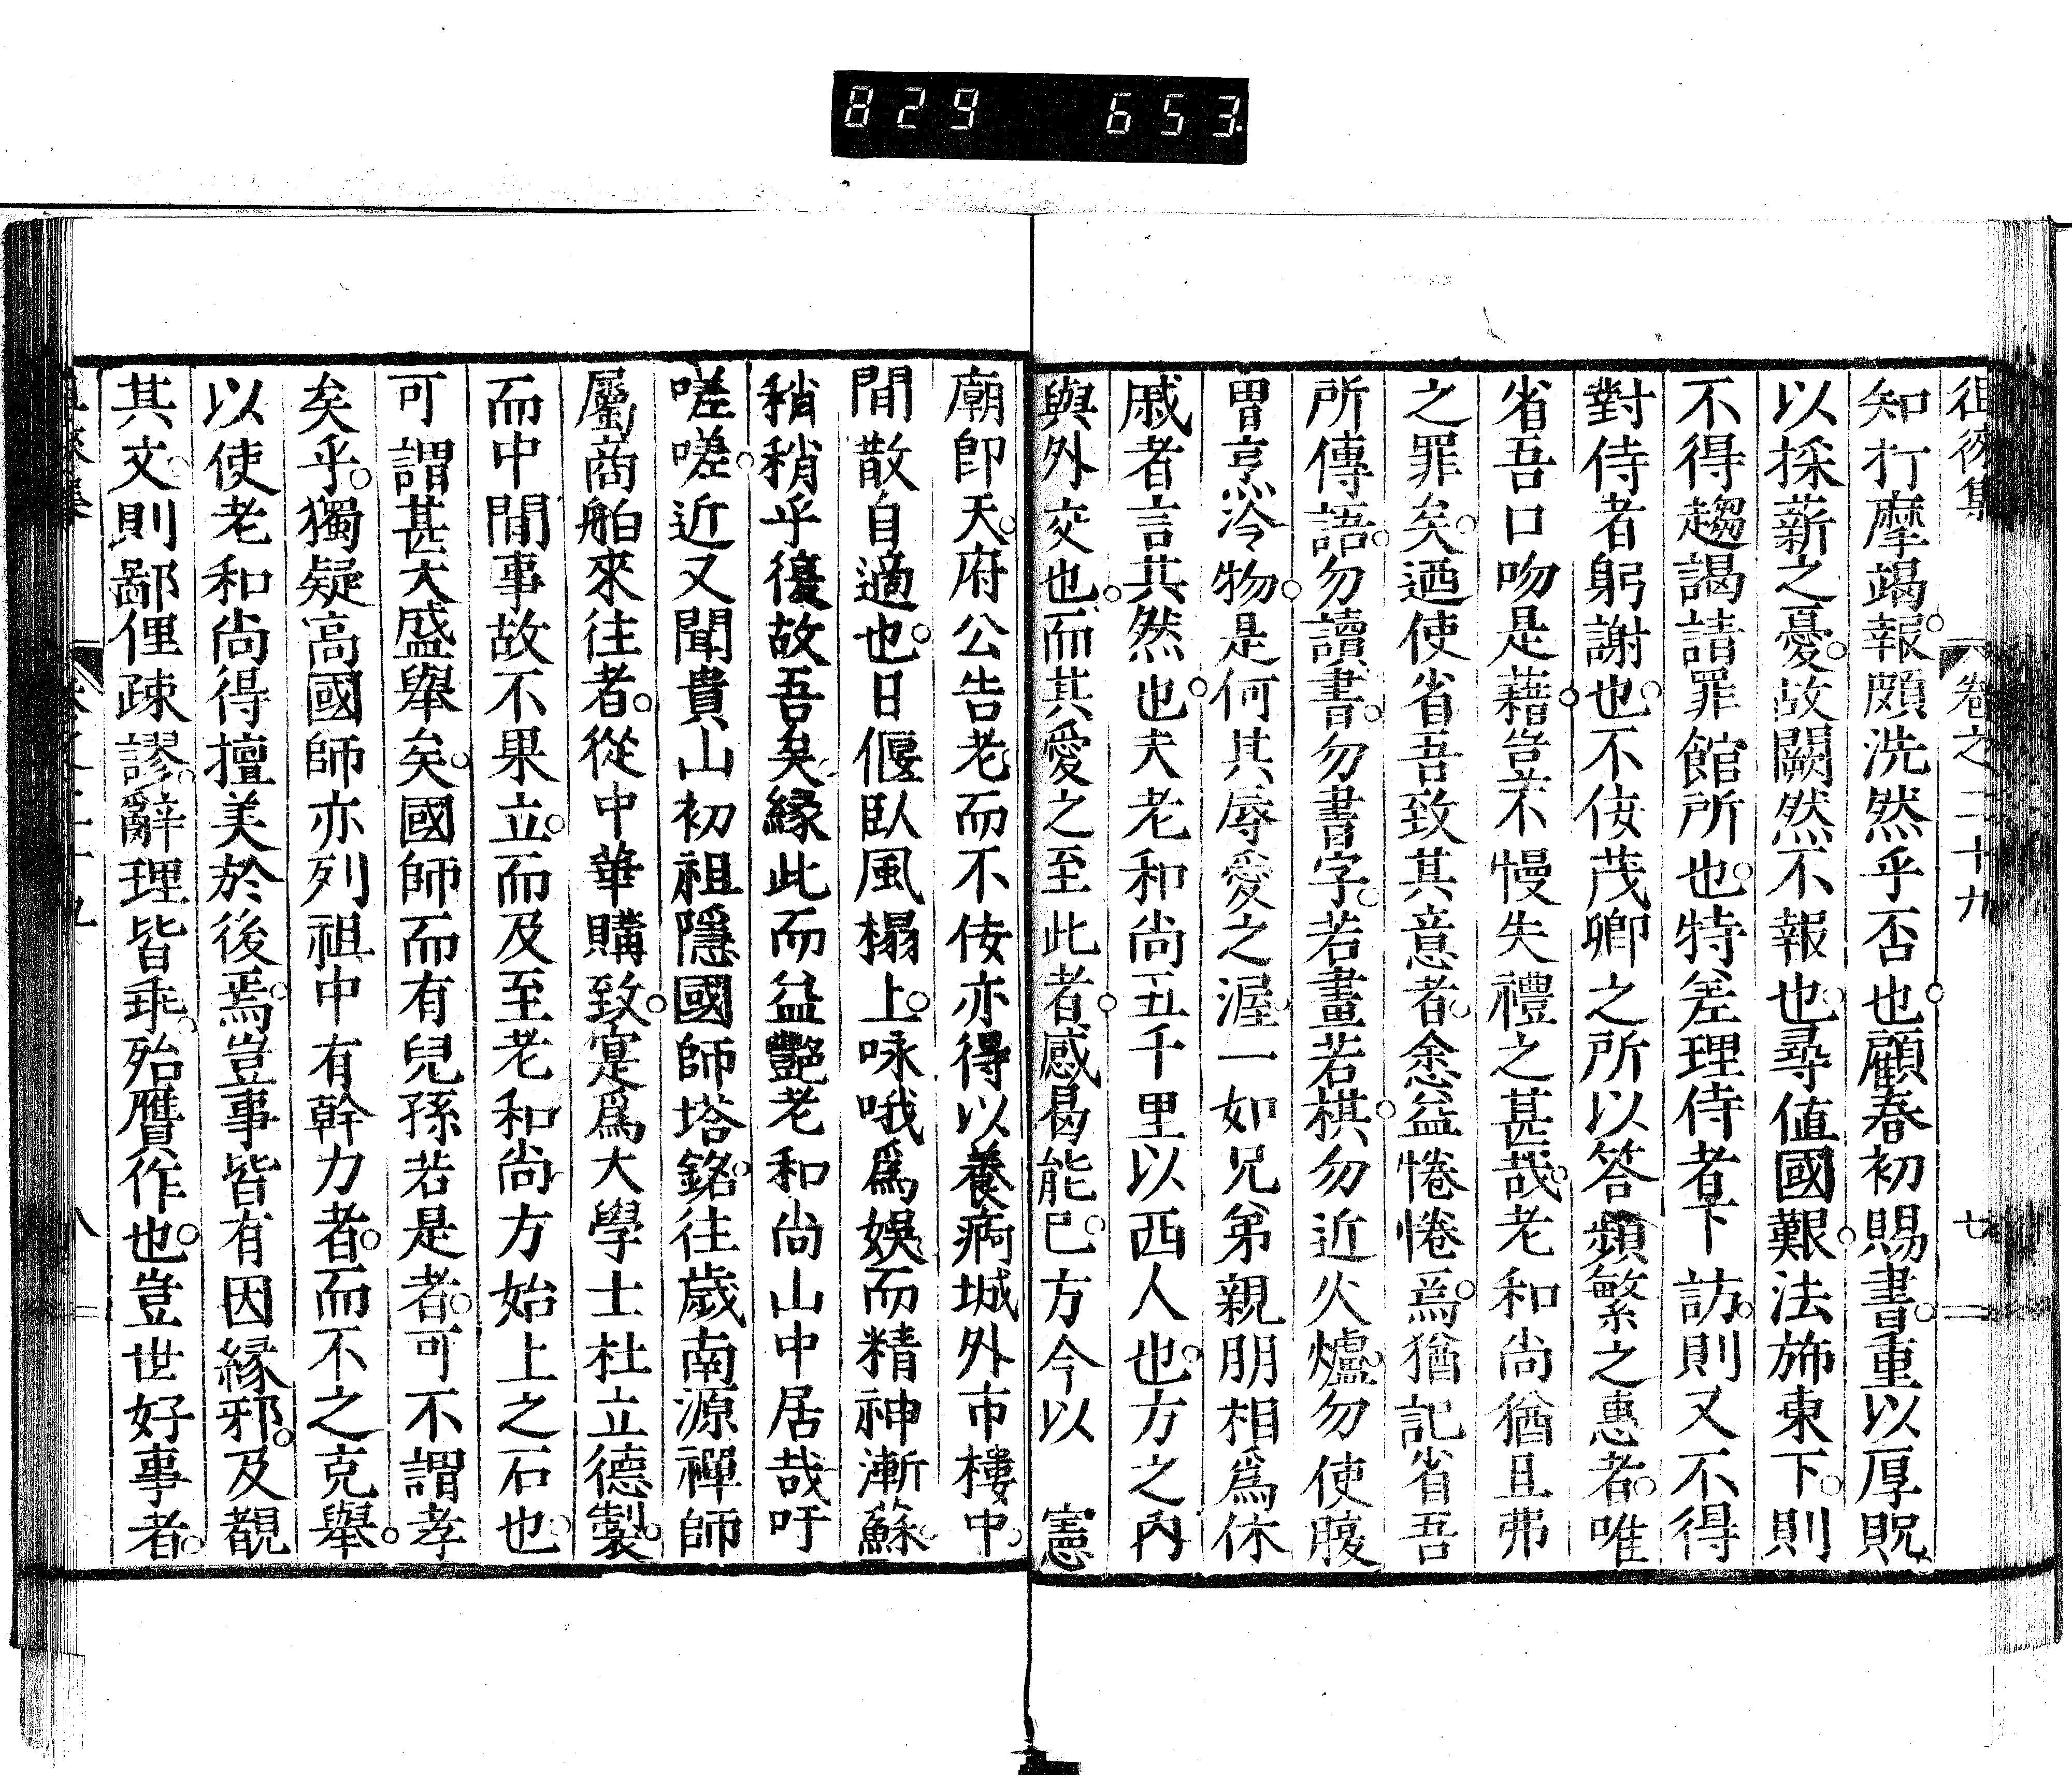 829 653
徂徠集 卷之二十九 七
知打摩竭。報頗洗然乎否也。顧春初賜書。重以厚貺
以採薪之憂。故闕然不報也。尋値國艱。法斾東下。則
不得趨謁請罪館所也。特差理侍者下訪。則又不得
對侍者躬謝也。不佞茂卿之所以答頻繁之惠者。唯
省吾口吻是藉。豈不慢失禮之甚哉。老和尚猶且弗
之罪矣。迺使省吾致其意者。悆益惓惓焉。猶記省吾
所傳語。勿讀書。勿書字。若畫若棋。勿近火爐。勿使腹
胃烹冷物。是何其辱愛之渥。一如兄弟親朋相爲休
戚者言其然也。夫老和尚五千里以西人也。方之內
與外交也。而其愛之至此者。感曷能已。方今以 憲
廟卽天。府公告老。而不佞亦得以養痾城外市樓中。
間散自適也。日偃臥風榻上。咏哦爲娛。而精神漸蘇。
稍稍乎復故吾矣。緣此而益豔老和尚山中居哉。吁
嗟嗟。近又聞貴山初祖隱國師塔銘。往歲南源禪師
屬商舶來往者。從中華購致。寔爲大學士杜立德製。
而中間事故不果立。而及至老和尚方始上之石也。
可謂甚大盛舉矣。國師而有兒孫若是者。可不謂孝
矣乎。獨疑高國師亦列祖中有幹力者。而不之克舉。
以使老和尚得擅美於後焉。豈事皆有因緣邪。及觀
其文。則鄙俚疎謬。辭理皆乖。殆贋作也。豈世好事者。
八